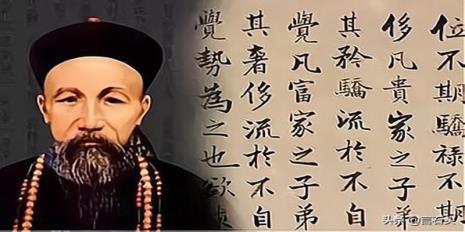 位不期驕禄不期
侈凡貴家之子弟
其矜驕流於不自
覺凡富家之子弟
其奢侈流於不自
覺勢為之也欲
头条